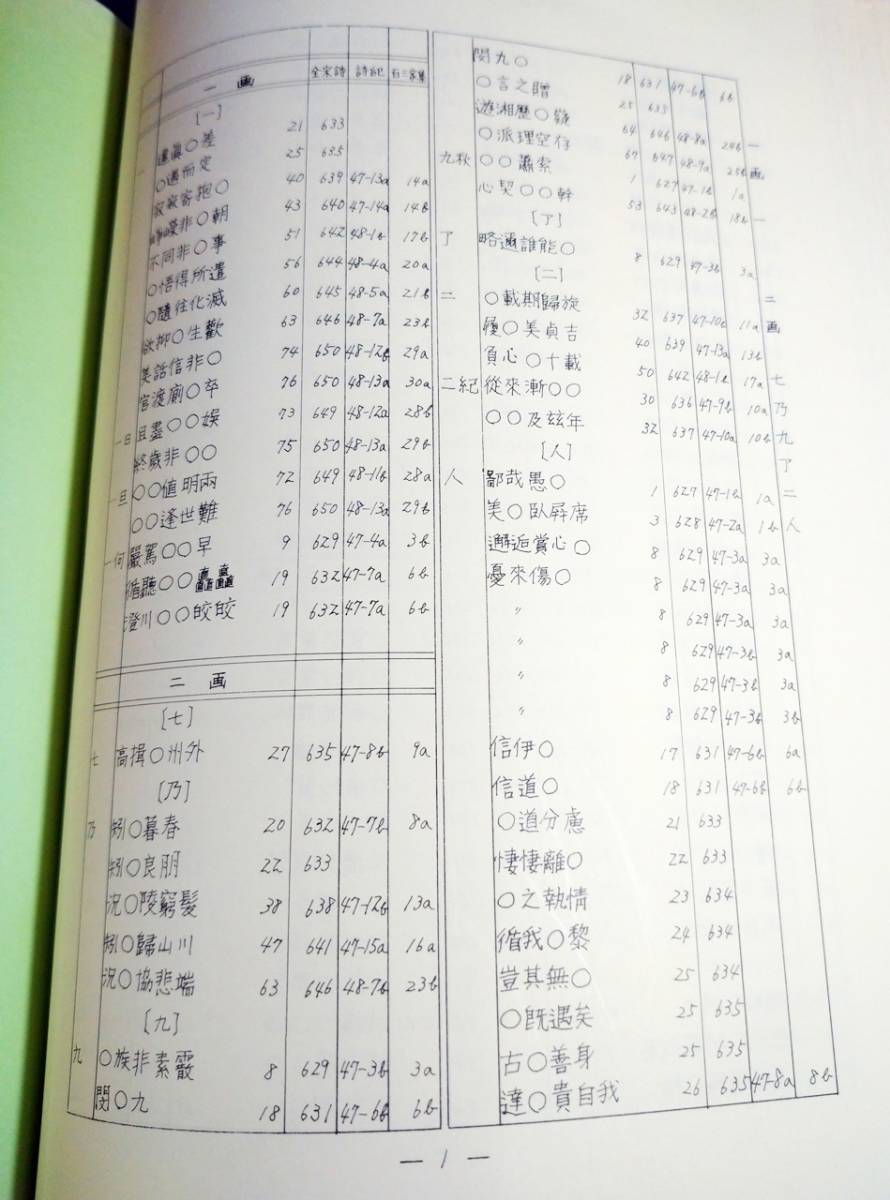 一画 全宋詩 詩紀 百三家集
[一]
違眞〇差 21 633
〇遇而定 25 635
寂寂寄抱〇 40 639 47-13a 14a
非〇朝 43 640 47-14a 14b
不同非〇事 51 642 48-1b 17b
〇悟得所遣 56 644 48-4a 20a
〇隨往化滅 60 645 48-5a 21b
欲抑〇生歡 63 646 48-7a 23b
美話信非〇 74 650 48-12b 29a
官渡廁〇卒 76 650 48-13a 30a
一日 且盡〇〇娯 73 649 48-12a 28b
終歳非〇〇 75 650 48-13a 29b
一旦 〇〇値明兩 72 649 48-11b 28a
〇〇逢世難 76 650 48-13a 29b
一何 嚴駕〇〇早 9 629 47-4a 3b
循聽〇〇矗矗 19 632 47-7a 6b
澄川〇〇皎皎 19 632 47-7a 6b
二画
[七]
七 高揖〇州外 27 635 47-8b 9a
[乃]
乃 矧〇暮春 20 632 47-7b 8a
矧〇良朋 22 633
況〇陵窮髮 38 638 47-12b 13a
矧〇歸山川 47 641 47-15a 16a
況〇協悲端 63 646 48-7b 23b
[九]
九 〇族非素霰 8 629 47-3b 3a
閔〇九 18 631 47-6b 6b
閔九〇 18 631 47-6b 6b
〇言之贈 25 635
遊湘歷〇嶷 64 646 48-8a 24b
〇派理空存 67 647 48-9a 25b
九秋 〇〇蕭索 1 627 47-1b 1a
心契〇〇幹 53 643 48-2b 18b
[了]
了 略邇誰能〇 8 629 47-3b 3a
[二]
二 〇載期歸旋 32 637 47-10b 11a
履〇美貞吉 40 639 47-13a 13b
負心〇十載 50 642 48-1b 17a
二紀 從來漸〇〇 30 636 47-9b 10a
〇〇及玆年 32 637 47-10a 10b
[人]
人 鄙哉愚〇 1 627 47-1b 1a
美〇臥屛席 3 628 47-2a 1b
邂逅賞心〇 8 629 47-3a 3a
憂來傷〇 8 629 47-3a 3a
〃 8 629 47-3a 3a
〃 8 629 47-3b 3a
〃 8 629 47-3b 3a
〃 8 629 47-3b 3b
信伊〇 17 631 47-6b 6a
信道〇 18 631 47-6b 6b
〇道分慮 21 633
悽悽離〇 22 633
〇之執情 23 634
循我〇黎 24 634
豈其無〇 25 634
〇旣遇矣 25 635
古〇善身 25 635
達〇貴自我 26 635 47-8a 8b
一
画
一
二
画
七
乃
九
了
二
人
— 1 —